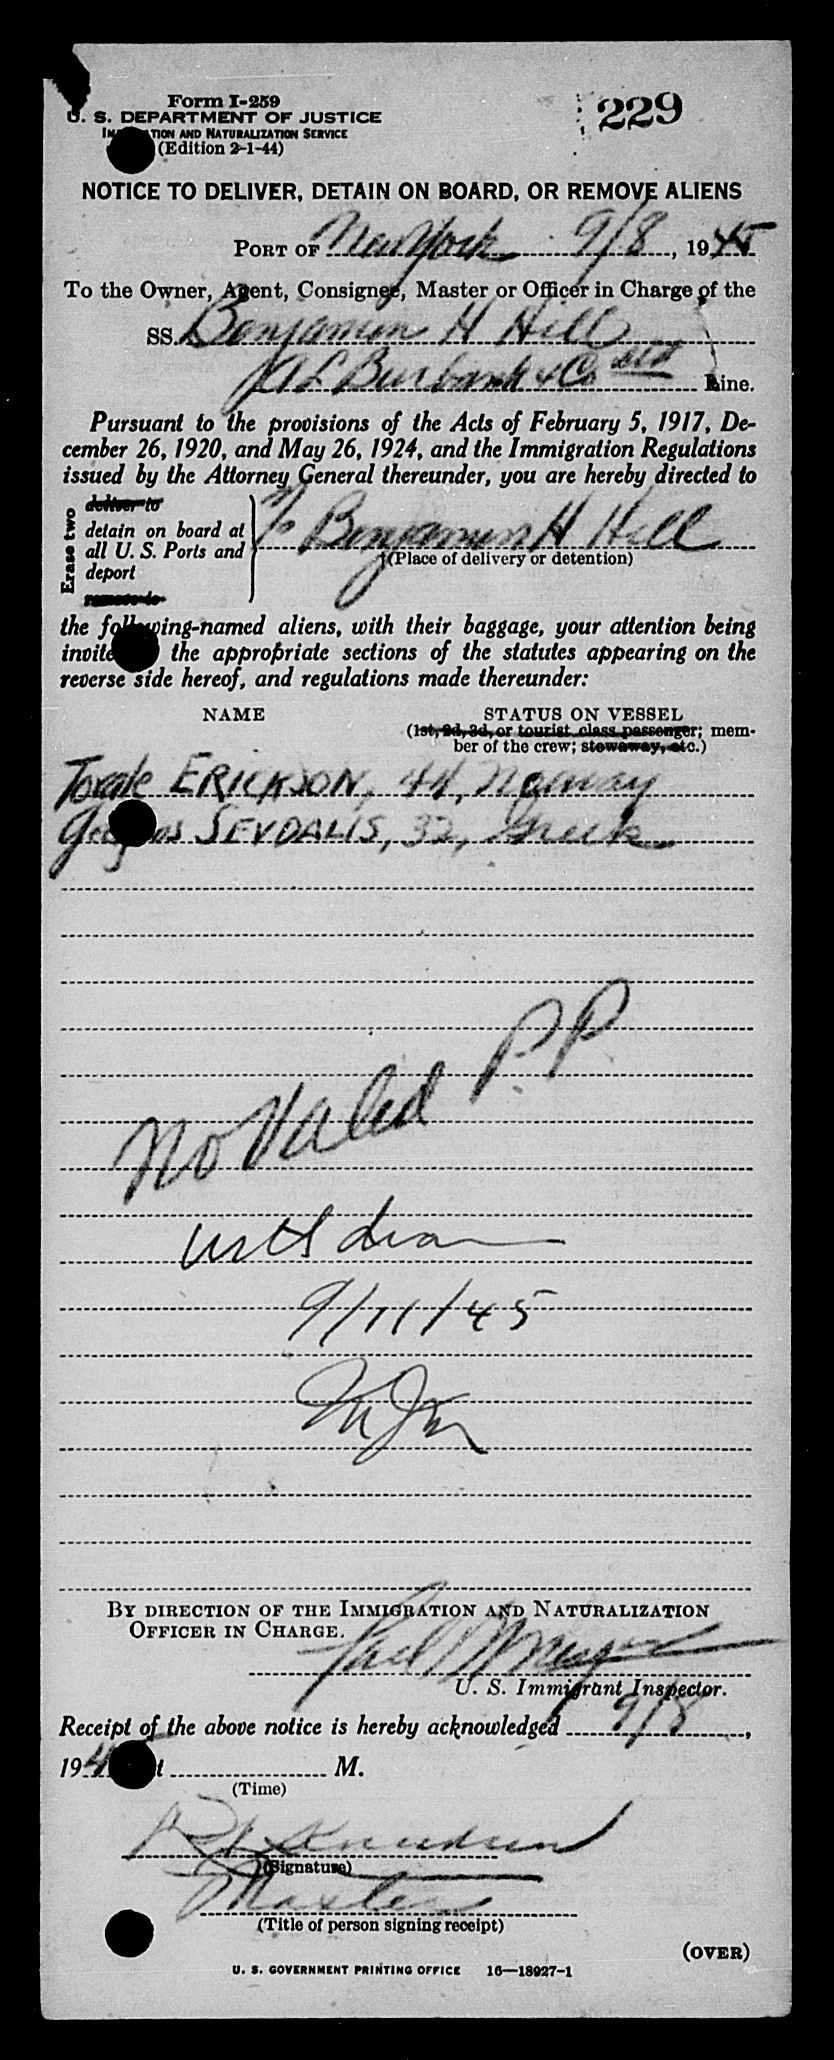 Form I-259
U. S. DEPARTMENT OF JUSTICE
IMMIGRATION AND NATURALIZATION SERVICE
(Edition 2-1-44)
229
NOTICE TO DELIVER, DETAIN ON BOARD, OR REMOVE ALIENS
PORT OF New York 9/8, 1945
To the Owner, Agent, Consignee, Master or Officer in Charge of the
SS. Benjamin H Hill
A L Burbank & Co Ltd Line.
Pursuant to the provisions of the Acts of February 5, 1917, De-
cember 26, 1920, and May 26, 1924, and the Immigration Regulations
issued by the Attorney General thereunder, you are hereby directed to
Erase two
deliver to
detain on board at
all U. S. Ports and
deport
remove to
Benjamin H Hill
(Place of delivery or detention)
the following-named aliens, with their baggage, your attention being
invited the appropriate sections of the statutes appearing on the
reverse side hereof, and regulations made thereunder:
NAME STATUS ON VESSEL
(1st, 2d, 3d, or tourist class passenger; mem-
ber of the crew; stowaway, etc.)
ERICKSON, 44, Norway
SEVDALIS, 32, Greek
No Valed P.P.
9/11/45
BY DIRECTION OF THE IMMIGRATION AND NATURALIZATION
OFFICER IN CHARGE.
U. S. Immigrant Inspector.
Receipt of the above notice is hereby acknowledged 9/8,
194 t M.
(Time)
Knudsen
(Signature)
Master
(Title of person signing receipt)
(OVER)
U. S. GOVERNMENT PRINTING OFFICE 16—18927-1